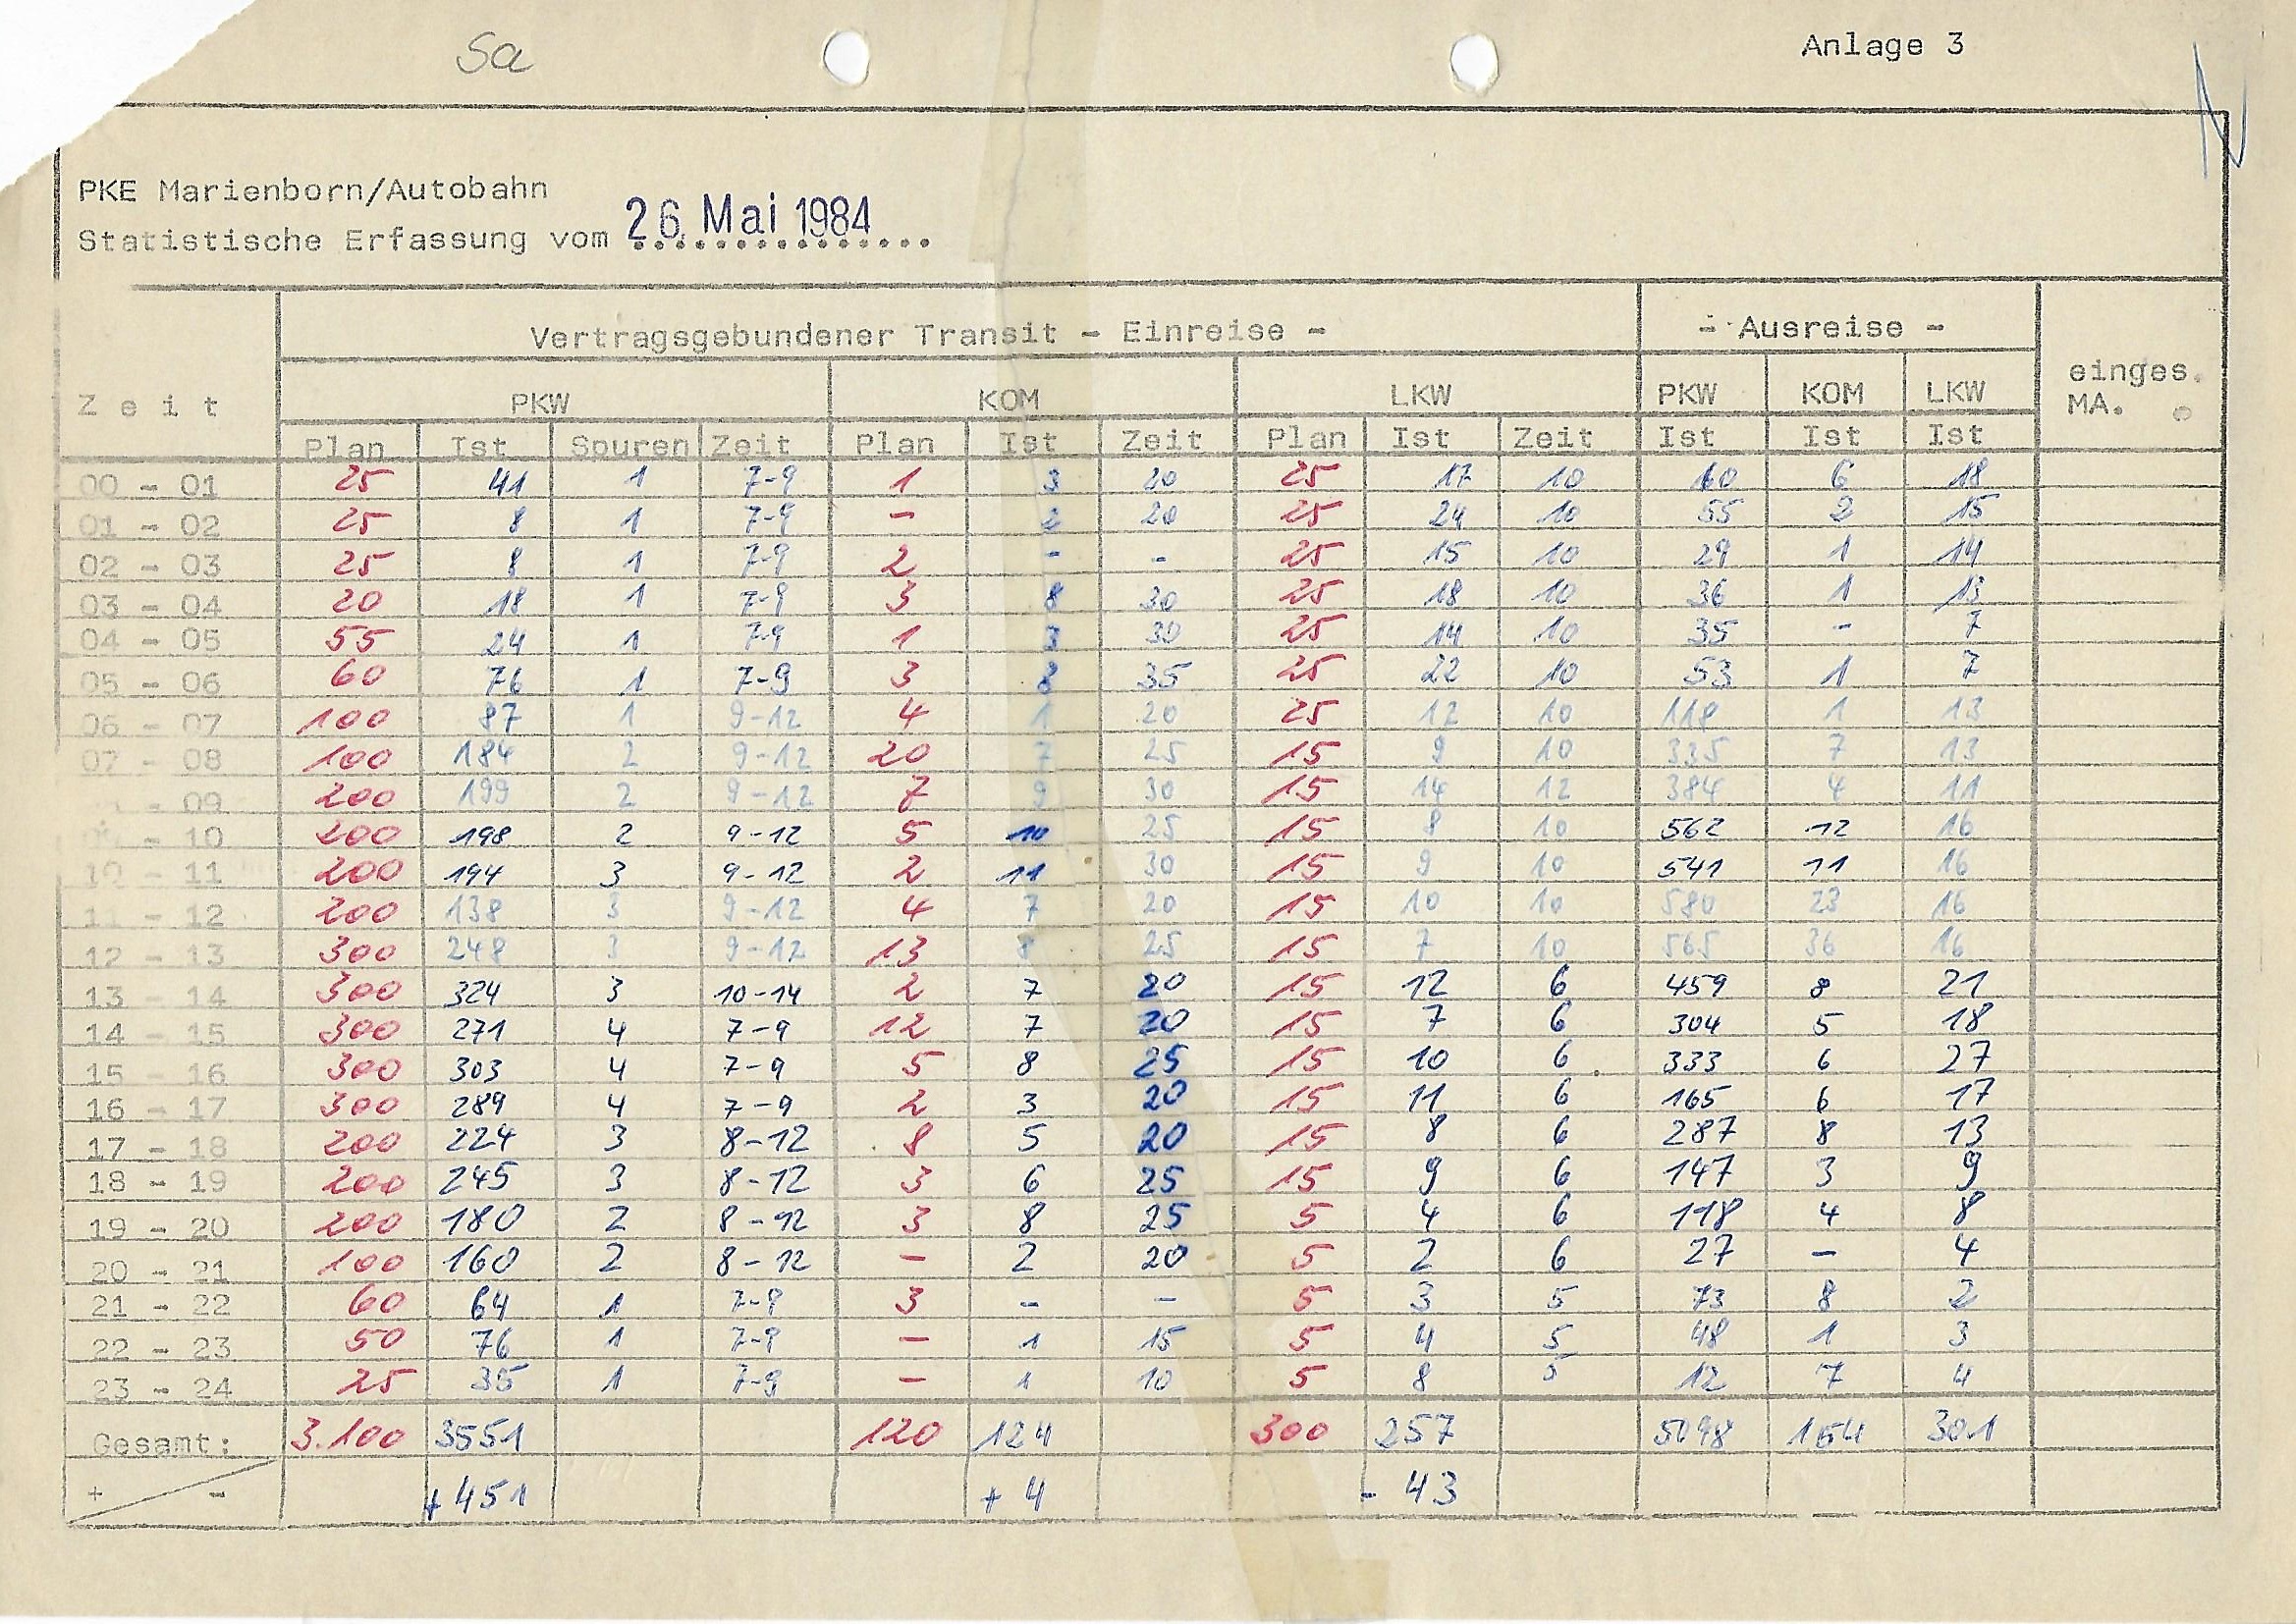 Sa
Anlage 3
PKE Marienborn/Autobahn
Statistische Erfassung vom 26. Mai 1984
Vertragsgebundener Transit - Einreise - - Ausreise -
Zeit PKW KOM LKW PKW KOM LKW einges. MA.
Plan Ist Spuren Zeit Plan Ist Zeit Plan Ist Zeit Ist Ist Ist
00 - 01 25 41 1 7-9 1 3 20 25 17 10 60 6 18
01 - 02 25 8 1 7-9 - 2 20 25 24 10 55 2 15
02 - 03 25 8 1 7-9 2 - - 25 15 10 29 1 14
03 - 04 20 18 1 7-9 3 8 30 25 18 10 36 1 13
04 - 05 55 24 1 7-9 1 3 30 25 14 10 35 - 7
05 - 06 60 76 1 7-9 3 8 35 25 22 10 53 1 7
06 - 07 100 87 1 9-12 4 1 20 25 12 10 118 1 13
07 - 08 100 184 2 9-12 20 7 25 15 9 10 335 7 13
- 09 200 199 2 9-12 7 9 30 15 14 12 384 4 11
- 10 200 198 2 9-12 5 10 25 15 8 10 562 12 16
10 - 11 200 194 3 9-12 2 11 30 15 9 10 541 11 16
11 - 12 200 138 3 9-12 4 7 20 15 10 10 580 23 16
12 - 13 300 248 3 9-12 13 8 25 15 7 10 565 36 16
13 - 14 300 324 3 10-14 2 7 20 15 12 6 459 8 21
14 - 15 300 271 4 7-9 12 7 20 15 7 6 304 5 18
15 - 16 300 303 4 7-9 5 8 25 15 10 6 333 6 27
16 - 17 300 289 4 7-9 2 3 20 15 11 6 165 6 17
17 - 18 200 224 3 8-12 8 5 20 15 8 6 287 8 13
18 - 19 200 245 3 8-12 3 6 25 15 9 6 147 3 9
19 - 20 200 180 2 8-12 3 8 25 5 4 6 118 4 8
20 - 21 100 160 2 8-12 - 2 20 5 2 6 27 - 4
21 - 22 60 64 1 7-9 3 - - 5 3 5 73 8 2
22 - 23 50 76 1 7-9 - 1 15 5 4 5 48 1 3
23 - 24 25 35 1 7-9 - 1 10 5 8 5 12 7 4
Gesamt: 3.100 3551 120 124 300 257 5098 164 301
+ - +451 +4 -43